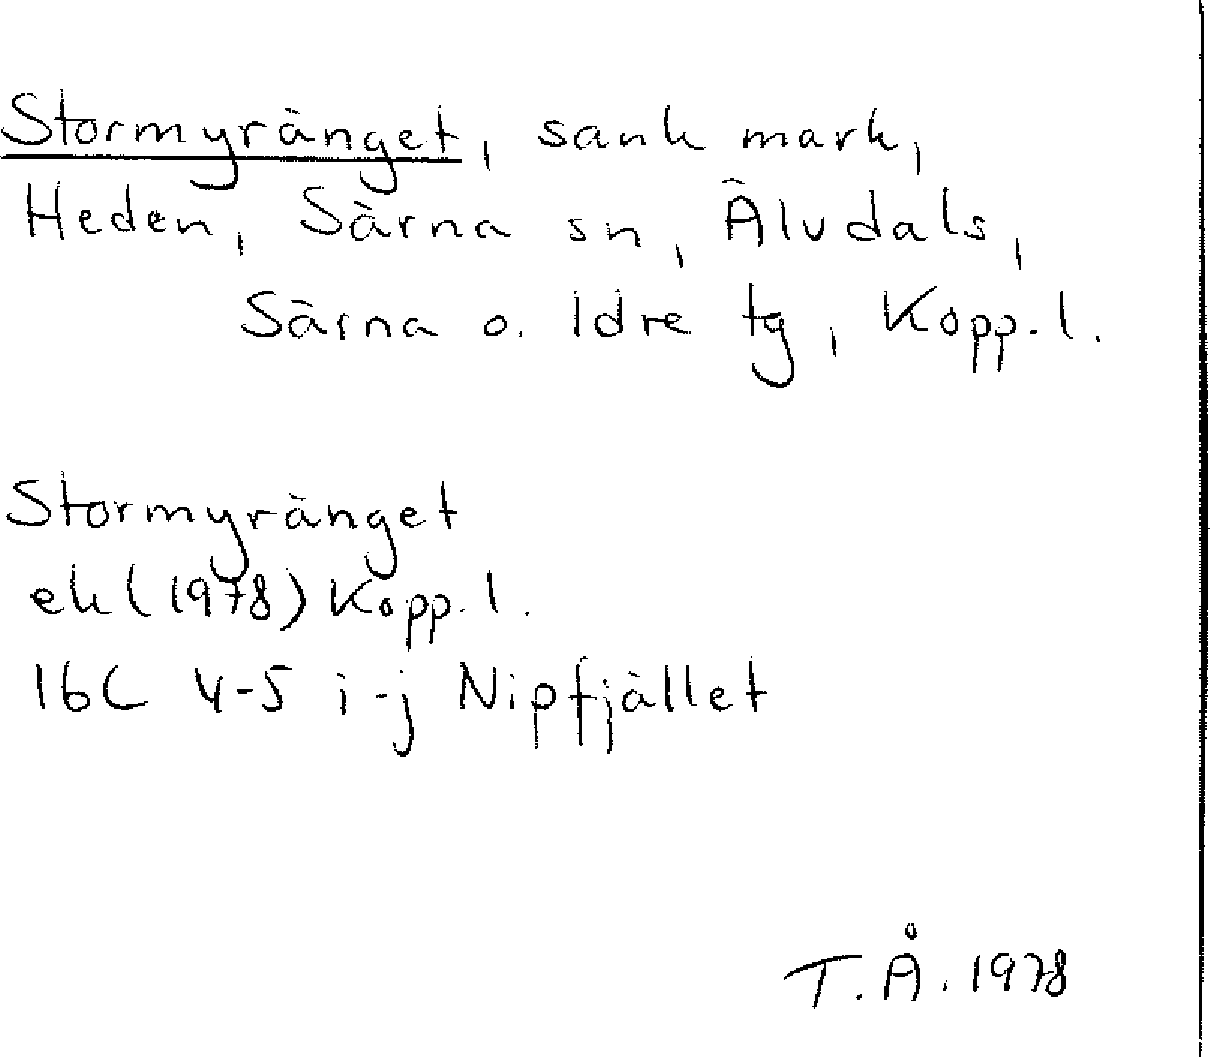 Stormyränget, sank mark,
Heden, Särna sn, Älvdals,
Särna o. Idre tg, Kopp. l.
Stormyränget
ek (1978) Kopp. l.
16C 4-5 i-j Nipfjället
T. Å. 1978